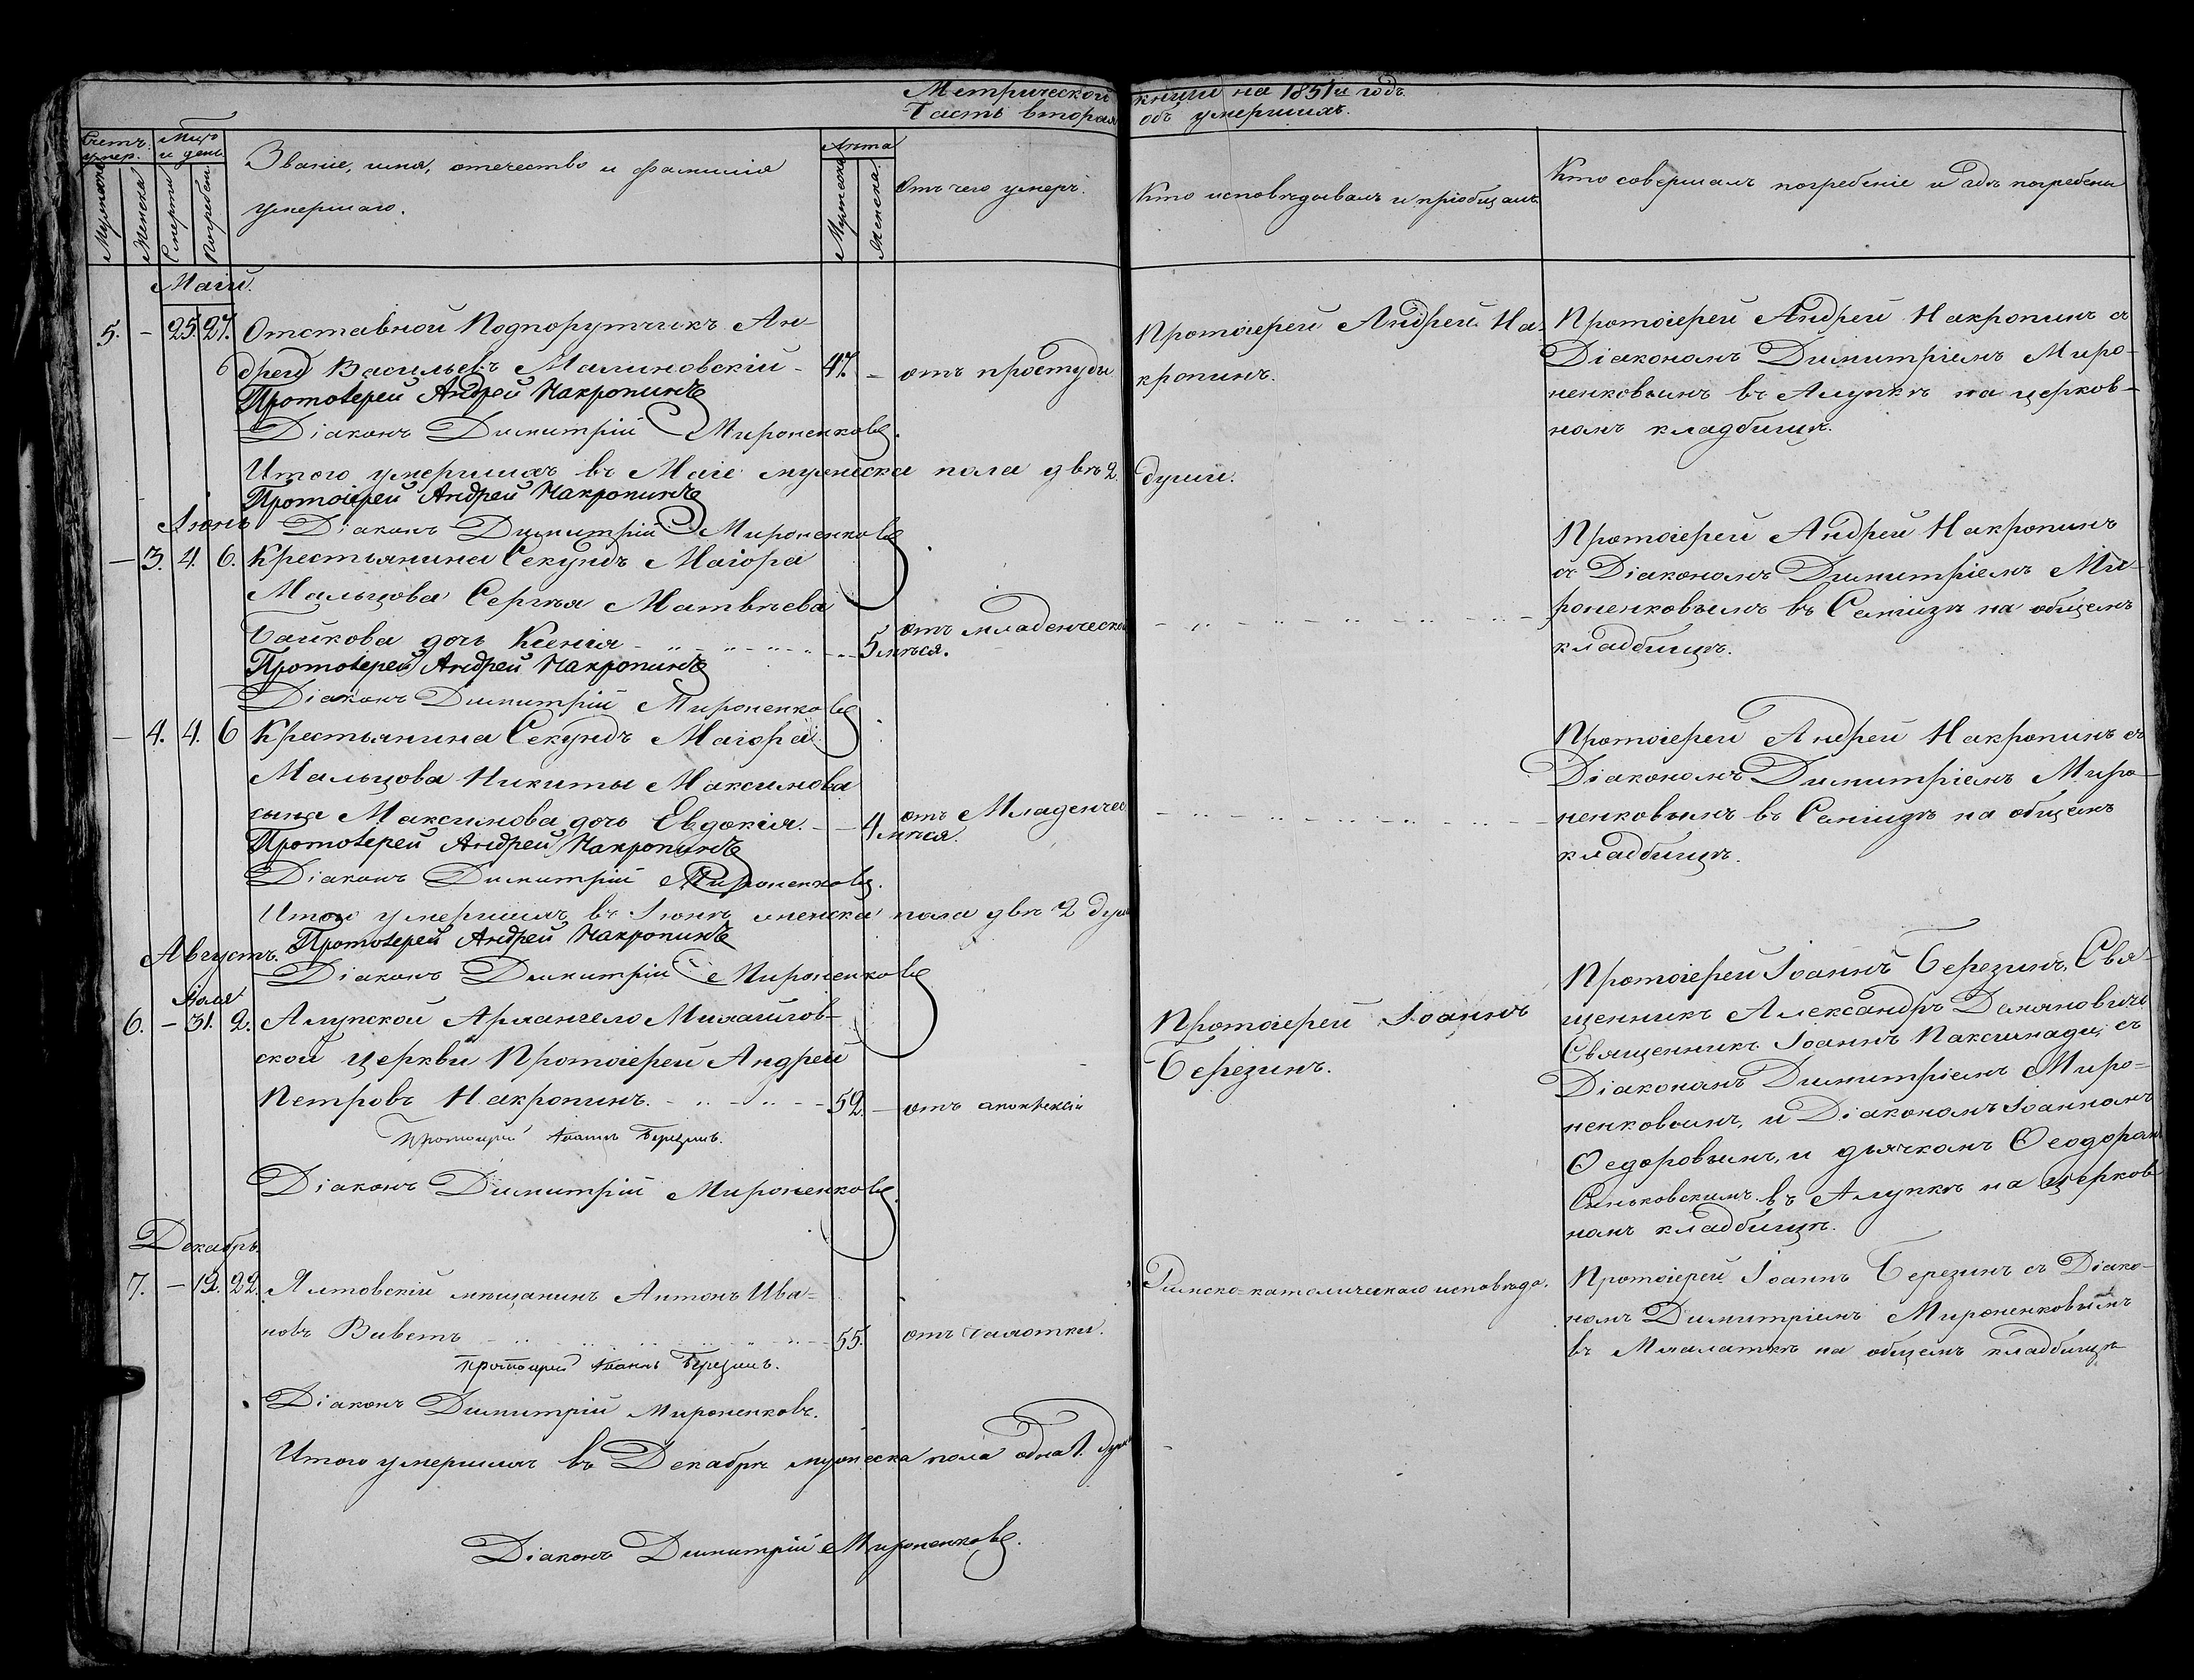 Метрической книги на 1851й годъ.
Часть вторая объ умершихъ.
Счетъ умер.
Мужеска
Женска
Мцъ и день
Смерти
Погребен.
Званіе, имя, отечество и фамилія
умершаго.
Лѣта
Мужеска
Женска
Отъ чего умеръ.
Кто исповѣдывалъ и пріобщалъ
Кто совершалъ погребеніе и гдѣ погребены
Маій.
5. - 25. 27. Отставной Подпорутчикъ Ан-
дрей Васильевъ Малиновскій - 47. - отъ простуды
Протоіерей Андрей На-
кропинъ.
Протоіерей Андрей Накропинъ съ
Діакономъ Димитріемъ Миро-
ненковымъ въ Алупкѣ на церков-
номъ кладбищѣ.
Протоіерей Андрей Накропинъ
Діаконъ Димитрій Мироненковъ.
Итого умершихъ въ Маіе мужеска пола двѣ 2. души.
Протоіерей Андрей Накропинъ
Діаконъ Димитрій Мироненковъ
Іюнь
- 3. 4. 6. Крестьянина Секундъ Маіора
Мальцова Сергѣя Матвѣева
Байкова дочь Ксенія - 5 мѣся. отъ младенческой
Протоіерей Андрей Накропинъ
съ Діакономъ Димитріемъ Ми-
роненковымъ въ Симіизѣ на общемъ
кладбищѣ.
Протоіерей Андрей Накропинъ
Діаконъ Димитрій Мироненковъ
- 4. 4. 6 Крестьянина Секундъ Маіора
Мальцова Никиты Максимова
сына Максимова дочь Евдокія. - 4 мѣся. отъ Младенчес
Протоіерей Андрей Накропинъ съ
Діакономъ Димитріемъ Миро-
ненковымъ въ Симіизѣ на общемъ
кладбищѣ.
Протоіерей Андрей Накропинъ
Діаконъ Димитрій Мироненковъ.
Итого умершихъ въ Іюнѣ женска пола двѣ 2 души
Протоіерей Андрей Накропинъ
Діаконъ Димитрій Мироненковъ
Августъ.
Іюля
6. - 31. 2. Алупской Архангело Михайлов-
ской церкви Протоіерей Андрей
Петровъ Накропинъ. - 52. - отъ апоплексіи
Протоіерей Іоаннъ
Березинъ.
Протоіерей Іоаннъ Березинъ, Свя-
щенникъ Александръ Демяновичъ
Священникъ Іоаннъ Паксимади, съ
Діакономъ Димитріемъ Миро-
ненковымъ, и Діакономъ Іоанномъ
Ѳедоровымъ, и дьячкомъ Ѳеодоромъ
Синьковскимъ въ Алупкѣ на церков
номъ кладбищѣ.
Протоіерей Іоаннъ Березинъ.
Діаконъ Димитрій Мироненковъ.
Декабрь.
7. - 19. 22. Ялтовскій мѣщанинъ Антонъ Ива-
новъ Виветъ - 55. отъ чахотки.
Римско-католическаго исповѣда.
Протоіерей Іоаннъ Березинъ съ Діако-
номъ Димитріемъ Мироненковымъ
въ Мхалаткѣ на общемъ кладбищѣ
Протоіерей Іоаннъ Березинъ.
Діаконъ Димитрій Мироненковъ.
Итого умершихъ въ Декабрѣ мужеска пола одна 1. душа
Діаконъ Димитрій Мироненковъ.